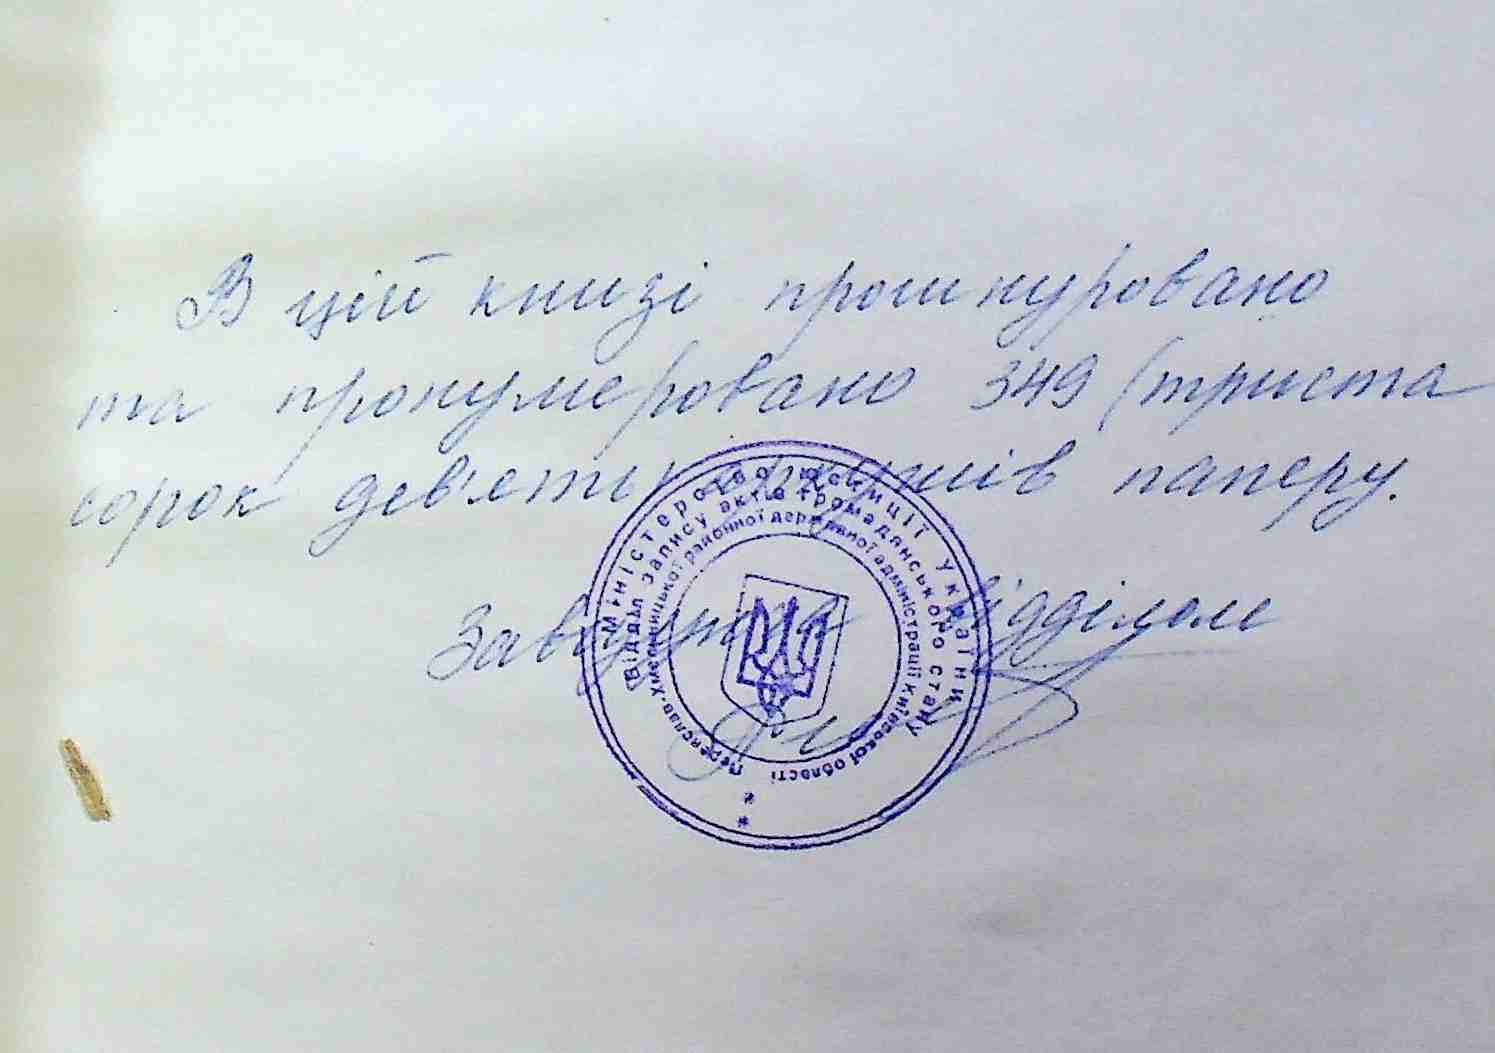 В цій книзі прошнуровано
та пронумеровано 349 (триста
сорок дев'ять) аркушів паперу.
Завідуюча відділом
Міністерство юстиції України
Відділ запису актів громадянського стану
Переяслав-Хмельницької районної державної адміністрації Київської області
* *